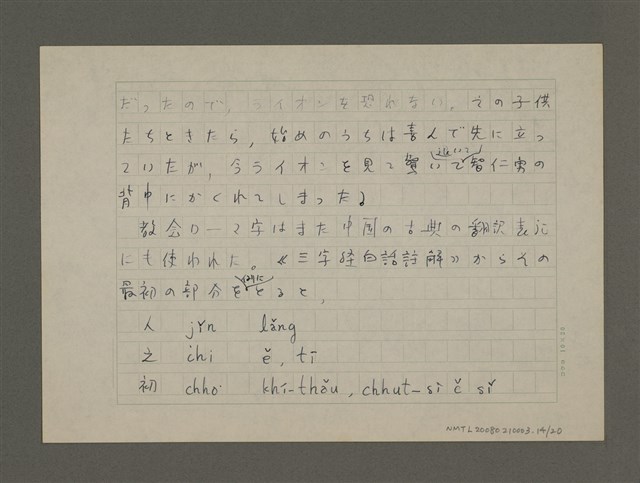 だったので、ライオンを恐れない。その子供
たちときたら、始めのうちは喜んで先に立っ
ていたが、今ライオンを見て驚いて智仁勇の
背中にかくれてしまった。
教会ローマ字はまた中国の古典の翻訳表記
にも使われた。《三字経白話註解》からその
最初の部分をとると、
人 jîn lâng
之 chi ê, tī
初 chho· khí-thâu, chhut-sì ê sî
NMTL20080210003.14/20